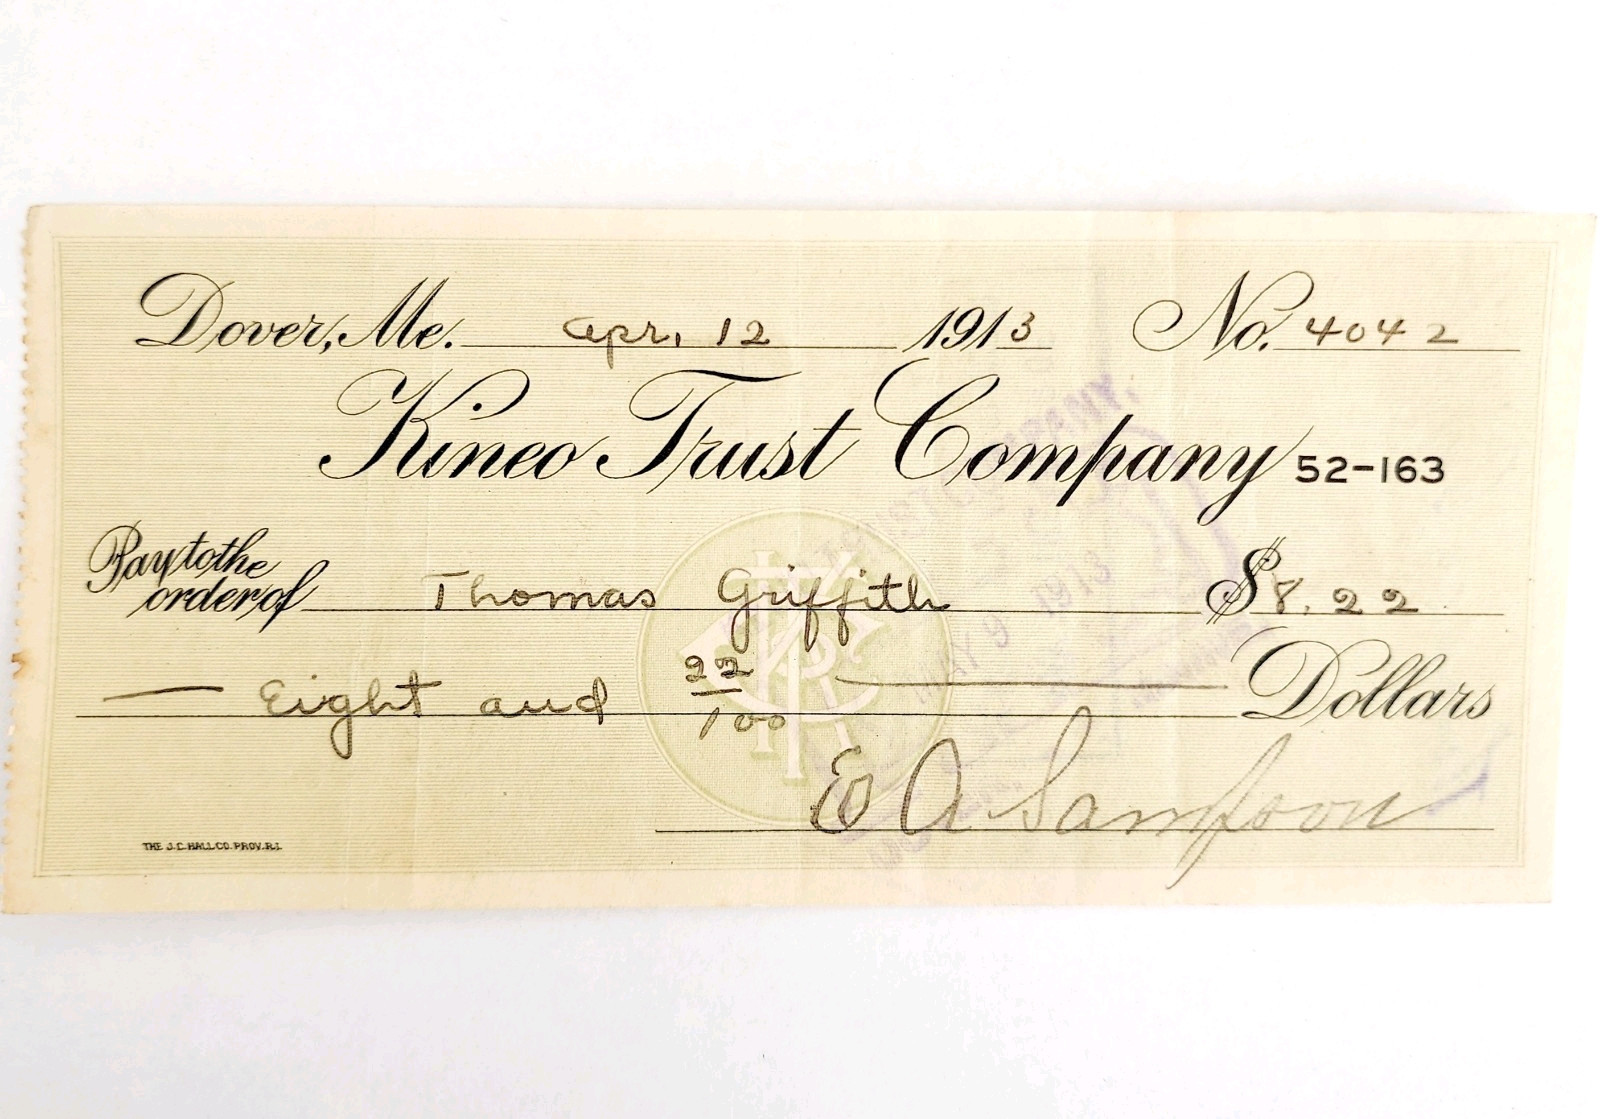 Dover, Me. Apr. 12 1913 No. 4042
Kineo Trust Company 52-163
Pay to the
order of Thomas Griffith $8.22
Eight and 22/100 Dollars
E A Sampson
THE J.C. HALL CO. PROV. R.I.
MAY 9 1913